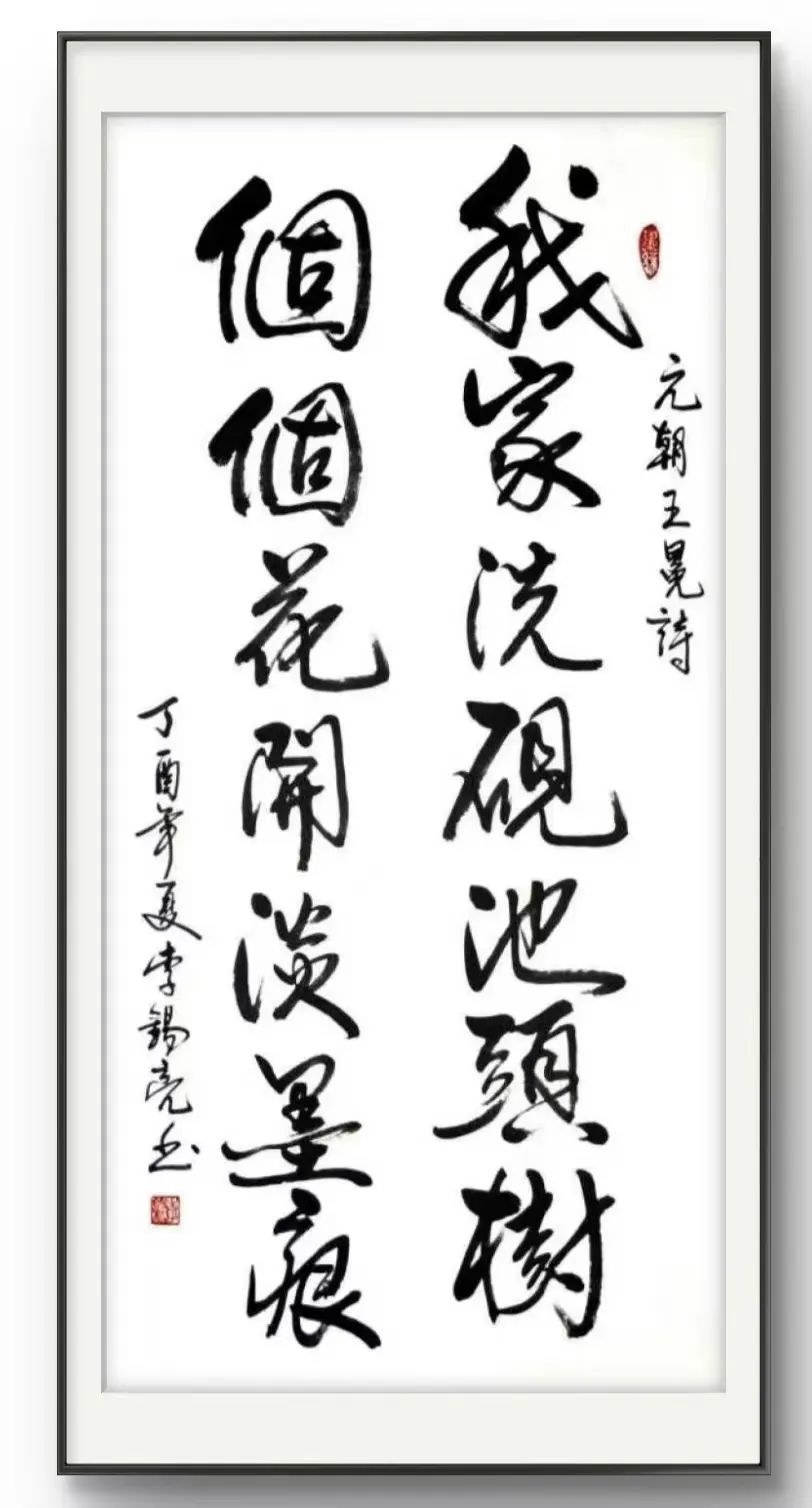 元朝王冕詩
我家洗硯池頭樹
個個花開淡墨痕
丁酉年夏李錫亮书